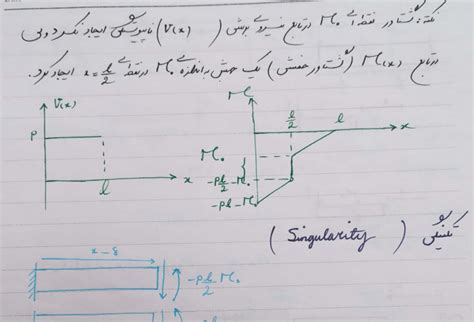 نکته: گشتاور نقطه‌ای M₀ در تابع نیروی برشی (V(x)) ناپیوستگی ایجاد نکرد ولی
در تابع M(x) (گشتاور خمشی) یک جهش به اندازه M₀ در نقطه‌ی x = l/2 ایجاد کرد.
V(x)
P
l
x
M
l/2
l
x
M₀
-Pl/2 - M₀
-Pl - M₀
تکینگی (Singularity)
x - δ
-Pl/2 - M₀